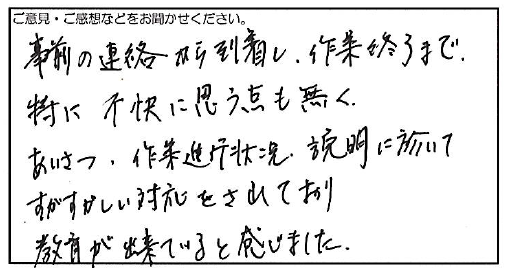 ご意見・ご感想などをお聞かせください。
事前の連絡から到着し、作業終了まで、
特に不快に思う点も無く、
あいさつ、作業進行状況、説明に於いて
すがすがしい対応をされており
教育が出来ていると感じました。